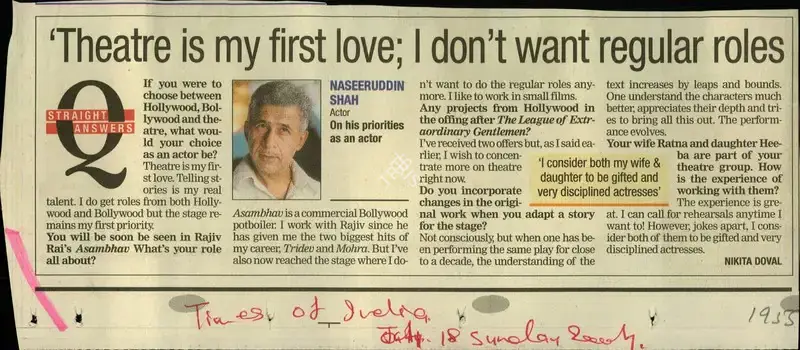 'Theatre is my first love; I don't want regular roles
Q
STRAIGHT
ANSWERS
If you were to
choose between
Hollywood, Bol-
lywood and the-
atre, what wou-
ld your choice
as an actor be?
Theatre is my fir-
st love. Telling st-
ories is my real
talent. I do get roles from both Holly-
wood and Bollywood but the stage re-
mains my first priority.
You will be soon be seen in Rajiv
Rai's Asambhav What's your role
all about?
NASEERUDDIN
SHAH
Actor
On his priorities
as an actor
Asambhav is a commercial Bollywood
potboiler. I work with Rajiv since he
has given me the two biggest hits of
my career, Tridev and Mohra. But I've
also now reached the stage where I do-
n't want to do the regular roles any-
more. I like to work in small films.
Any projects from Hollywood in
the offing after The League of Extr-
aordinary Gentlemen?
I've received two offers but, as I said ea-
rlier, I wish to concen-
trate more on theatre
right now.
Do you incorporate
changes in the origi-
nal work when you adapt a story
for the stage?
Not consciously, but when one has be-
en performing the same play for close
to a decade, the understanding of the
'I consider both my wife &
daughter to be gifted and
very disciplined actresses'
text increases by leaps and bounds.
One understand the characters much
better, appreciates their depth and tri-
es to bring all this out. The perform-
ance evolves.
Your wife Ratna and daughter Hee-
ba are part of your
theatre group. How
is the experience of
working with them?
The experience is gre-
at. I can call for rehearsals anytime I
want to! However, jokes apart, I cons-
ider both of them to be gifted and very
disciplined actresses.
NIKITA DOVAL
Times of India
18 Sunday